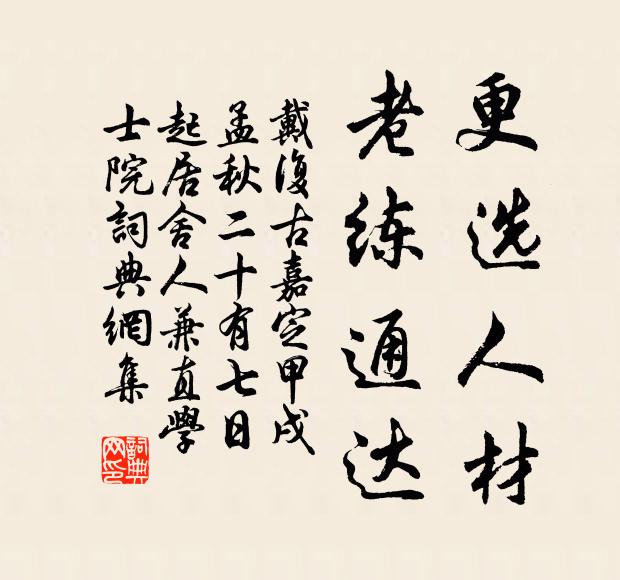 更选人材
老练通达
戴復古嘉定甲戌
孟秋二十有七日
起居舍人兼直學
士院詞典網集
詞典网印